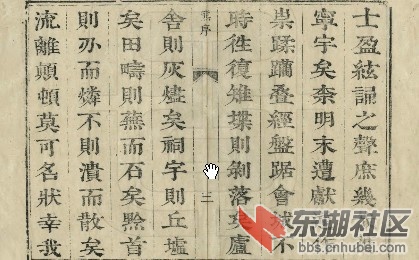 士盈絃誦之聲庶幾
寧宇矣柰明末遭獻
祟蹂躪叠經盤踞會城不
時徃復雉堞則剝落矣廬
序
三
舍則灰燼矣祠宇則丘墟
矣田疇則蕪而石矣黔首
則刅而燐不則潰而散矣
流離顛頓莫可名狀幸我
东湖社区
bbs.cnhubei.com